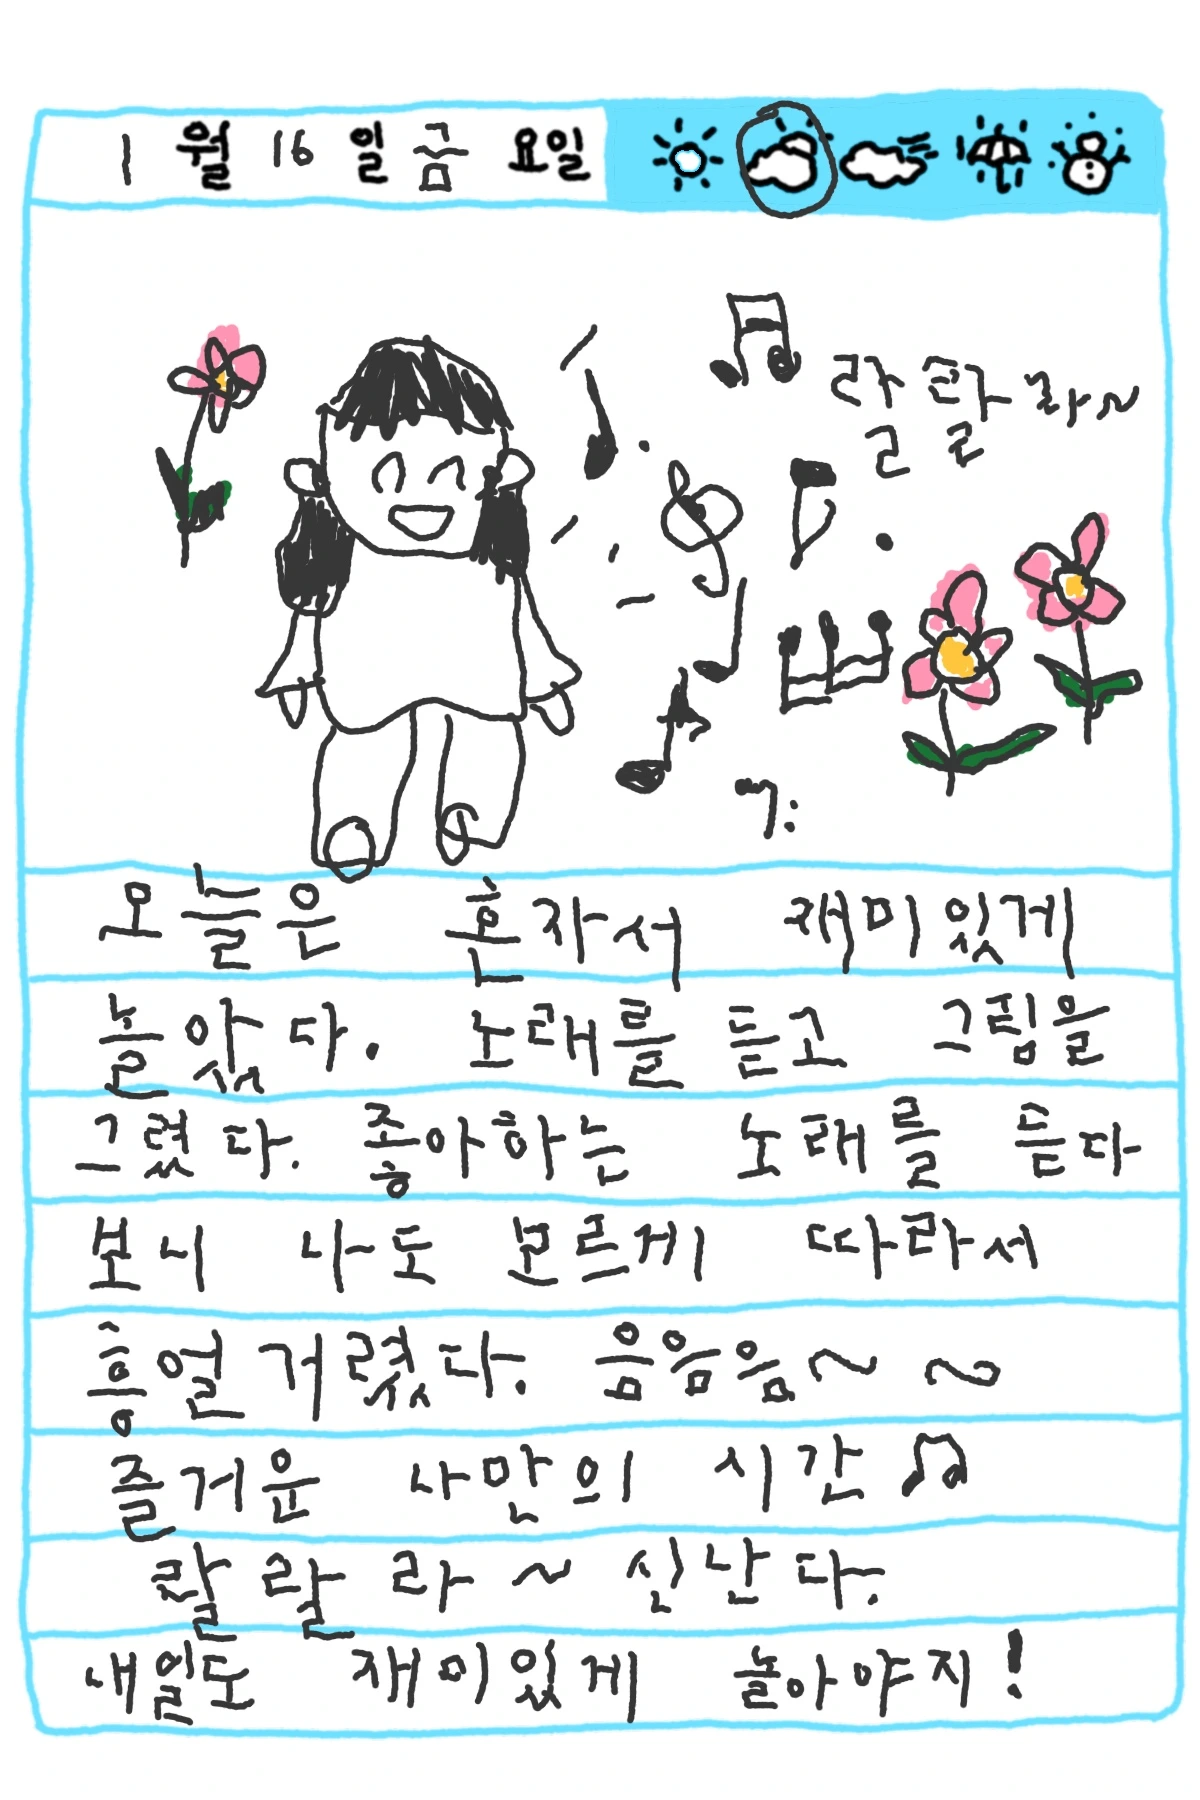 1월 16일 금요일
랄랄라~
오늘은 혼자서 재미있게
놀았다. 노래를 듣고 그림을
그렸다. 좋아하는 노래를 듣다
보니 나도 모르게 따라서
흥얼거렸다. 음음음~ ~
즐거운 나만의 시간♫
랄랄라~ 신난다.
내일도 재미있게 놀아야지!